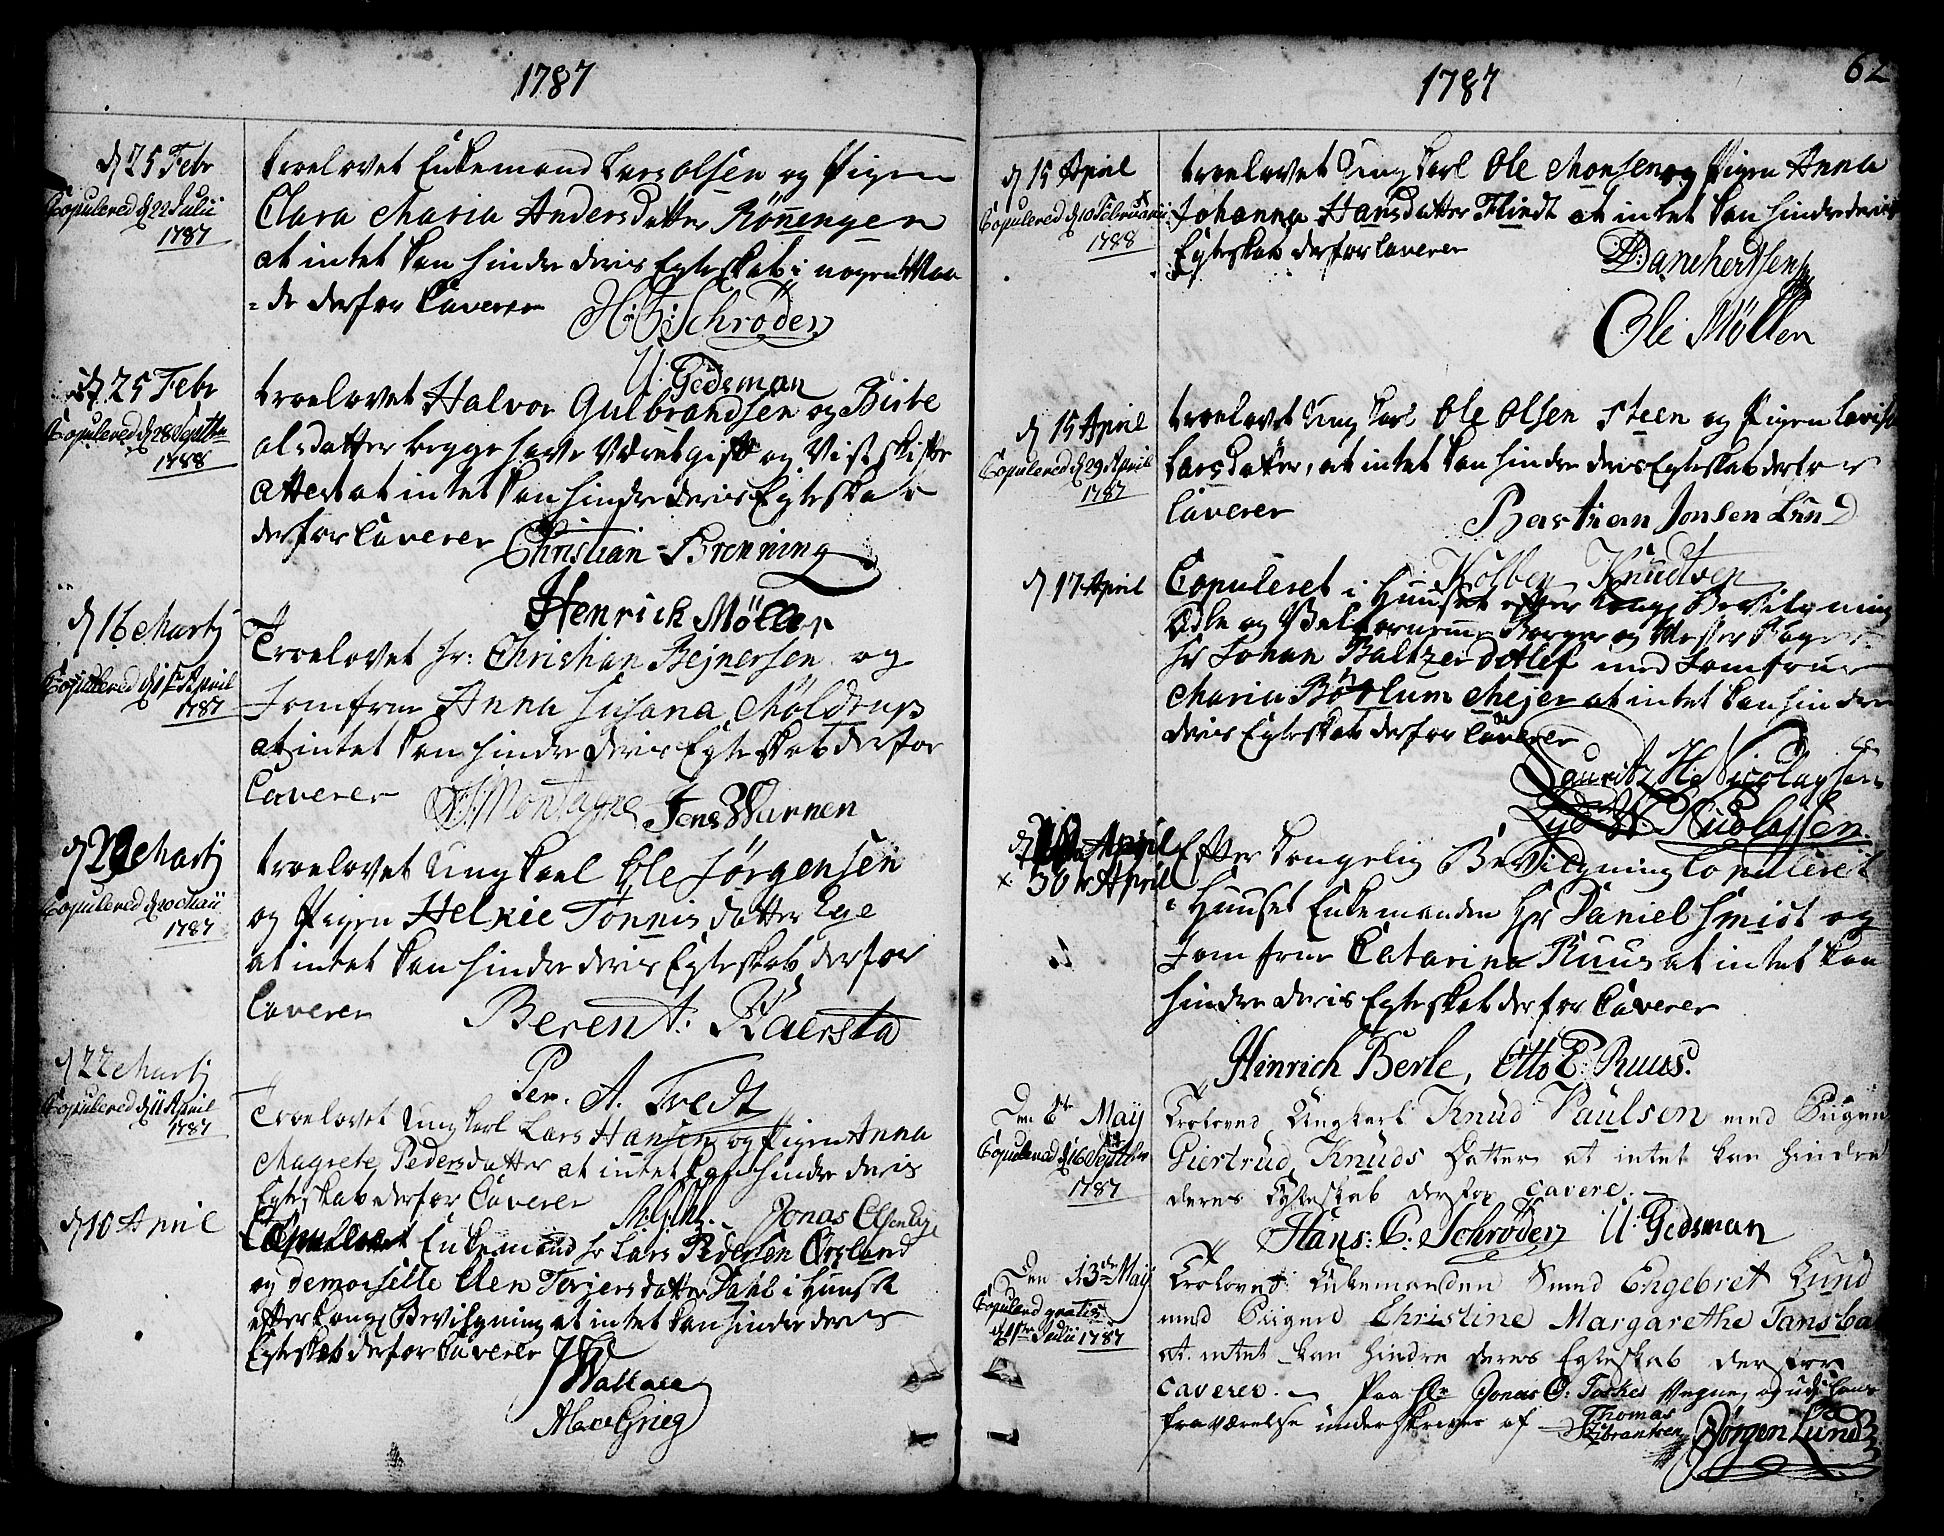 1787
d 25 Febr
Copulered d 22 Julii
1787
troelovet Enkemand Lars Olsen og Pigen
Clara Maria Andersdatter Rönningen
at intet kan hindre deris Egteskab i nogen Maa
-de derfor Caverer
H: C: Schrøder
U. Gedsman
d. 25 Febr
Copulered d 28 Septbr
1788
troelovet Halvor Gulbrandsen og Birte
olsdatter begge have Været gift og Vist skifte
attest at intet kan hindre deris Egteskab
derfor Caverer
Christian Brenning
Henrich Möller
d 16 Martj
Copulered d 15 April
1787
Troelovet Hr: Christian Rejnersen og
Jomfrue Anna Susana Möldrup
at intet kan hindre deris Egteskab derfor
Caverer
Montagne Jens Warnen
d 20 Martj
Copulered d 10 Maii
1787
troelovet Ungkarl Ole Jörgensen
og Pigen Helkie Tönnis datter Ege
at intet kan hindre deris Egteskab derfor
Caverer
Berent Kaersta
Per. A. Tredt
d 22 Martj
Copulered d 11 April
1787
Troelovet Ungkarl Lars Hansen og Pigen Anna
Magrete Pedersdatter at intet kan hindre deris
Egteskab derfor Caverer
Jonas Olsen
d 10 April
Copulleret Enkemand hr Lars Pedersen Örsland
og demoiselle Elen Terjersdatter Dahl i Huuset
efter Kong Bevilgning at intet kan hindre deris
Egteskab derfor Caverer
J Wallace
Alex Grieg
1787
62
d 15 April
Copulered d 10 Februarii
1788
troelovet Ung karl Ole Monsen og Pigen Anna
Johanna Hansdatter Flindt at intet kan hindre deris
Egteskab derfor Caverer
D: Danchertsen
Ole Møller
d 15 April
Copulered d 29 April
1787
troelovet Ung karl Ole Olsen Steen og Pigen Lovisa
Larsdatter, at intet kan hindre deris Egteskab derfor
Caverer
Bastian Jonsen Lund
Kolben Knudtsen
d 17 April
Copuleret i Huuset efter Kong Bevilgning
Ædle og Velfornemme Borger og Mester Bager
hr Johan Baltzer Detlef med Jomfrue
Maria Bötkum Mejer at intet kan hindre
deris Egteskab derfor Caverer
Lauritz H: Nicolaysen
Nicolaysen
April
x 30te April
Efter Kongelig Bevilgning Copuleret
i Huuset Enkemanden Hr Daniel Smidt og
Jomfrue Catarina Ruus at intet kan
hindre deris Egteskab derfor Caverer
Hinrich Berle, Otto E. Ruus.
Den 8de May
Copulered d 16 Septbr
1787
Trolovet Ungkarl Knud Paulsen med Piigen
Giertrud Knuds Datter at intet kan hindre
deres Egteskab derfor cavere.
Hans: C: Schrøder U. Gedsman
Den 13de May
Copulered gratis
d 1ste Julii 1787
Trolovet Enkemanden Smed Engebret Lund
med Piigen Christine Margarethe Jansba
at intet kan hindre deres Egteskab derfore
caverer. - Paa Hr Jonas O: Taskes Vegne, og udi hans
fraværelse underskrevne af
Thomas
Zibrantsen
Jörgen Lund